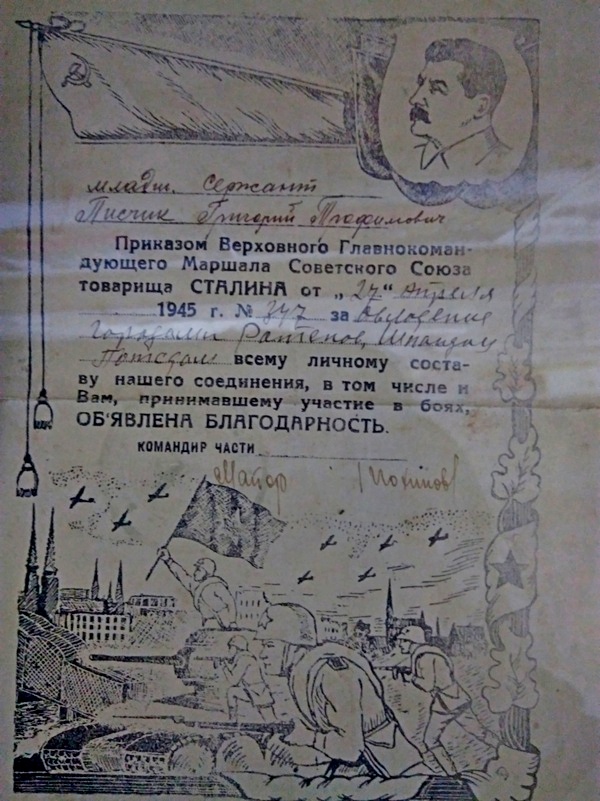 младш. Сержант
Писчик Григорий Трофимович
Приказом Верховного Главнокоман-
дующего Маршала Советского Союза
товарища СТАЛИНА от „27“ Апреля
1945 г. № 347 за Овладение
городами Ратенов, Шпандау
Потсдам всему личному соста-
ву нашего соединения, в том числе и
Вам, принимавшему участие в боях,
ОБ'ЯВЛЕНА БЛАГОДАРНОСТЬ.
КОМАНДИР ЧАСТИ
Майор